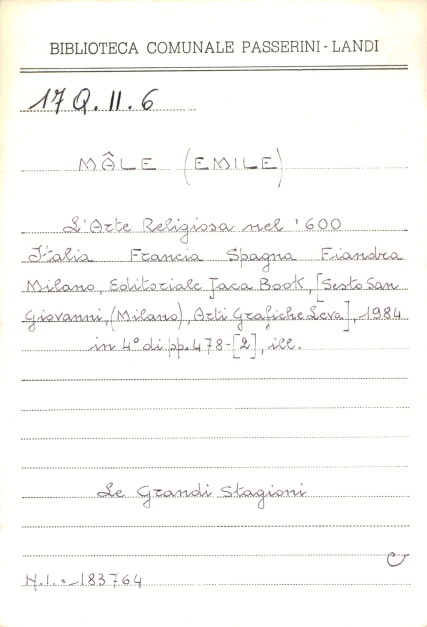 BIBLIOTECA COMUNALE PASSERINI - LANDI
17 Q. II. 6
MÂLE (EMILE)
L'Arte Religiosa nel '600
Italia Francia Spagna Fiandra
Milano, Editoriale Jaca Book, [Sesto San
Giovanni, (Milano), Arti Grafiche Leva], 1984
in 4° di pp. 478-[2], ill.
Le Grandi Stagioni
N.I. = 183764